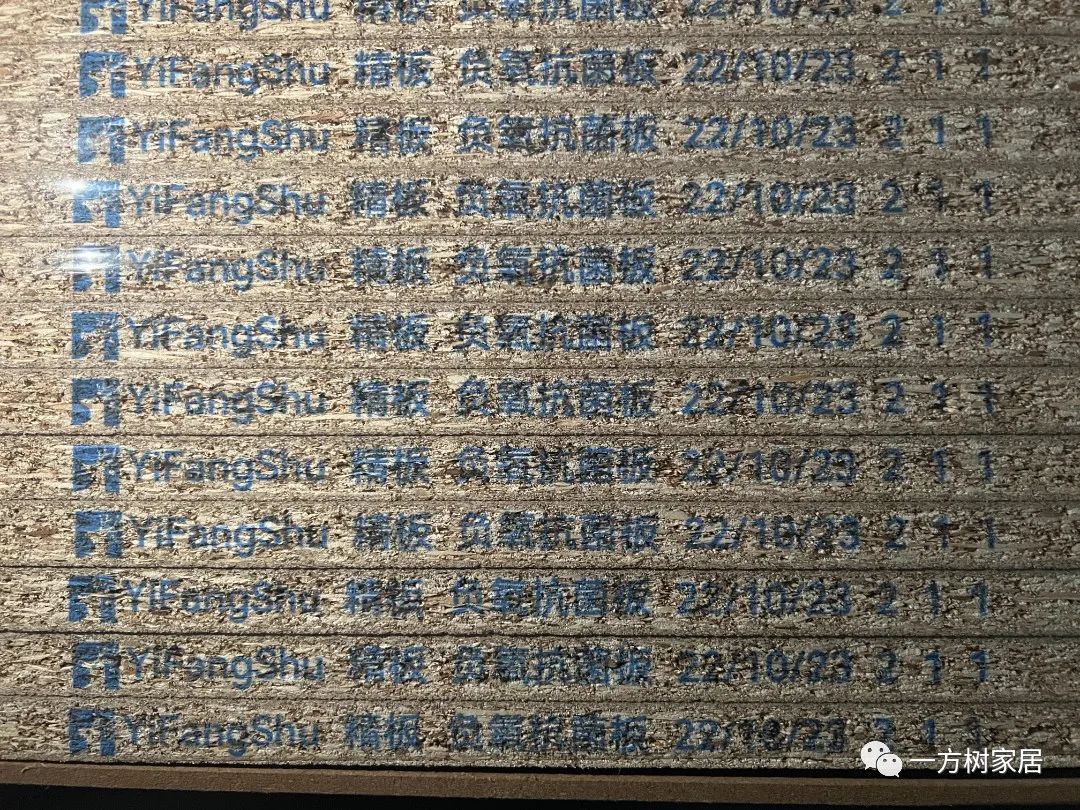 YiFangShu 精板 负氧抗菌板 22/10/23 2 1 1
YiFangShu 精板 负氧抗菌板 22/10/23 2 1 1
YiFangShu 精板 负氧抗菌板 22/10/23 2 1 1
YiFangShu 精板 负氧抗菌板 22/10/23 2 1 1
YiFangShu 精板 负氧抗菌板 22/10/23 2 1 1
YiFangShu 精板 负氧抗菌板 22/10/23 2 1 1
YiFangShu 精板 负氧抗菌板 22/10/23 2 1 1
YiFangShu 精板 负氧抗菌板 22/10/23 2 1 1
YiFangShu 精板 负氧抗菌板 22/10/23 2 1 1
YiFangShu 精板 负氧抗菌板 22/10/23 2 1 1
YiFangShu 精板 负氧抗菌板 22/10/23 2 1 1
YiFangShu 精板 负氧抗菌板 22/10/23 2 1 1
一方树家居